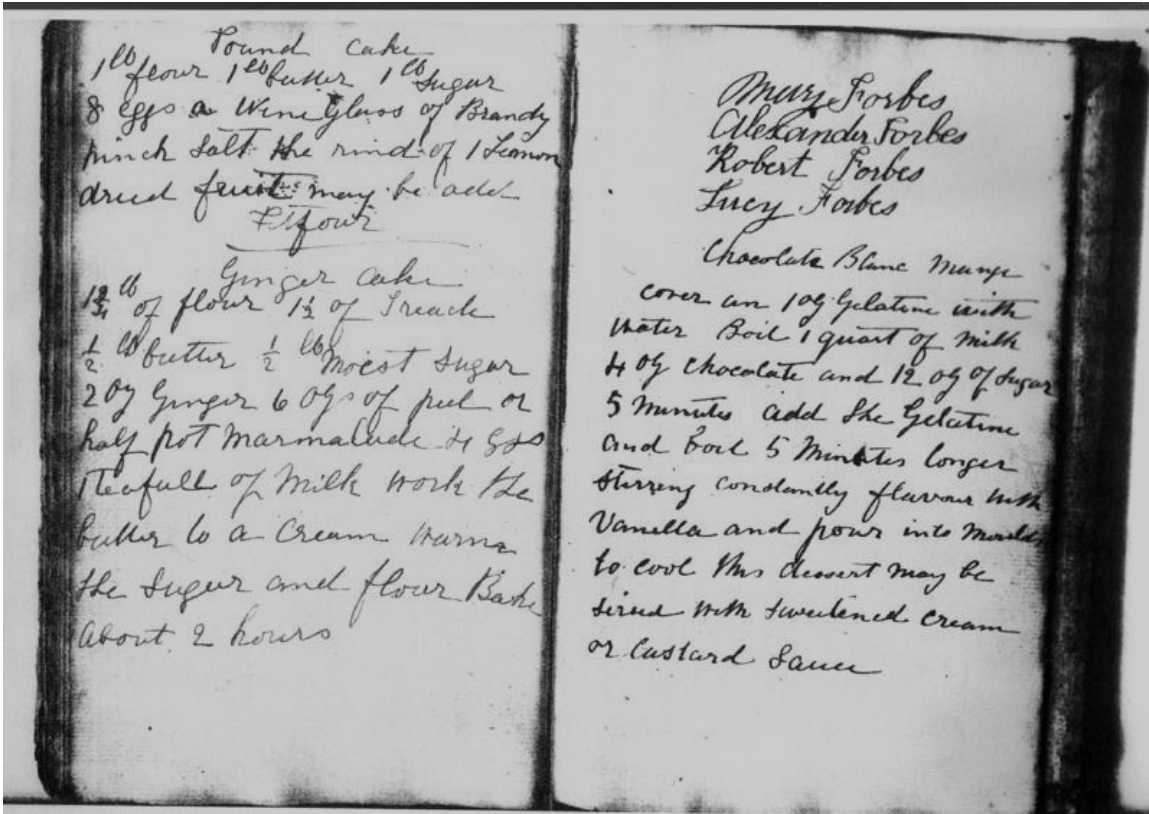 Pound Cake
1 lb flour 1 lb butter 1 lb Sugar
8 eggs a Wine Glass of Brandy
pinch Salt the rind of 1 Lemon
dried fruit may be add
Ginger Cake
lb of flour 1½ of Treacle
½ lb butter ½ lb Moist Sugar
2 oz Ginger 6 ozs of peel or
half pot Marmalade 4 
1 teafull of Milk work the
butter to a Cream warm
the Sugar and flour Bake
about 2 hours
Mury Forbes
Alexander Forbes
Robert Forbes
Lucy Forbes
Chocolate Blanc Mange
cover an 1 oz Gelatine with
water Boil 1 quart of Milk
4 oz Chocolate and 12 oz of Sugar
5 Minutes add the Gelatine
and boil 5 Minutes longer
stirring constantly flavour with
Vanella and pour into Moulds
to cool this dessert may be
sirved with sweetened cream
or Custard Sauce